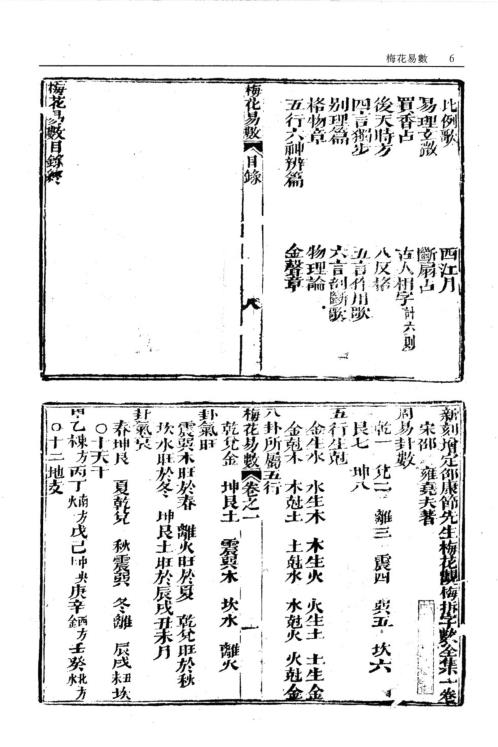 梅花易數 6
比例歌 西江月
易理玄微 斷扇占
買香占 古人相字計六則
後天時方 八反格
四言獨步 五言作用歌
別理篇 六言剖斷歌
格物章 物理論
五行六神辨篇 金聲章
梅花易數 目錄 八
梅花易數目錄終
新刻增定邵康節先生梅花觀梅拆字數全集一卷
宋邵 雍堯夫著
周易卦數
乾一 兌二 離三 震四 巽五 坎六
艮七 坤八
五行生剋
金生水 水生木 木生火 火生土 土生金
金剋木 木剋土 土剋水 水剋火 火剋金
八卦所屬五行
梅花易數 卷之一
乾兌金 坤艮土 震巽木 坎水 離火
卦氣旺
震巽木旺於春 離火旺於夏 乾兌旺於秋
坎水旺於冬 坤艮土旺於辰戌丑未月
卦氣衰
春坤艮 夏乾兌 秋震巽 冬離 辰戌丑未坎
〇十天干
甲乙東方 丙丁火南方 戊己土中央 庚辛金西方 壬癸水北方
〇十二地支